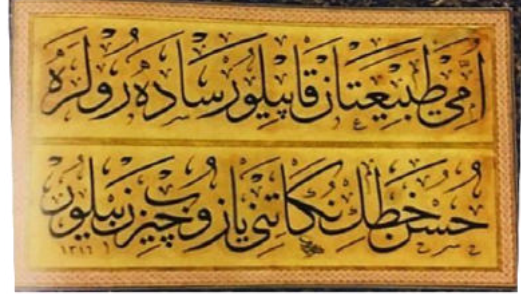 امّی طبیعتان قاپیلور ساده رولره
حسن خطك نكاتنی یازوب چیزن بیلور